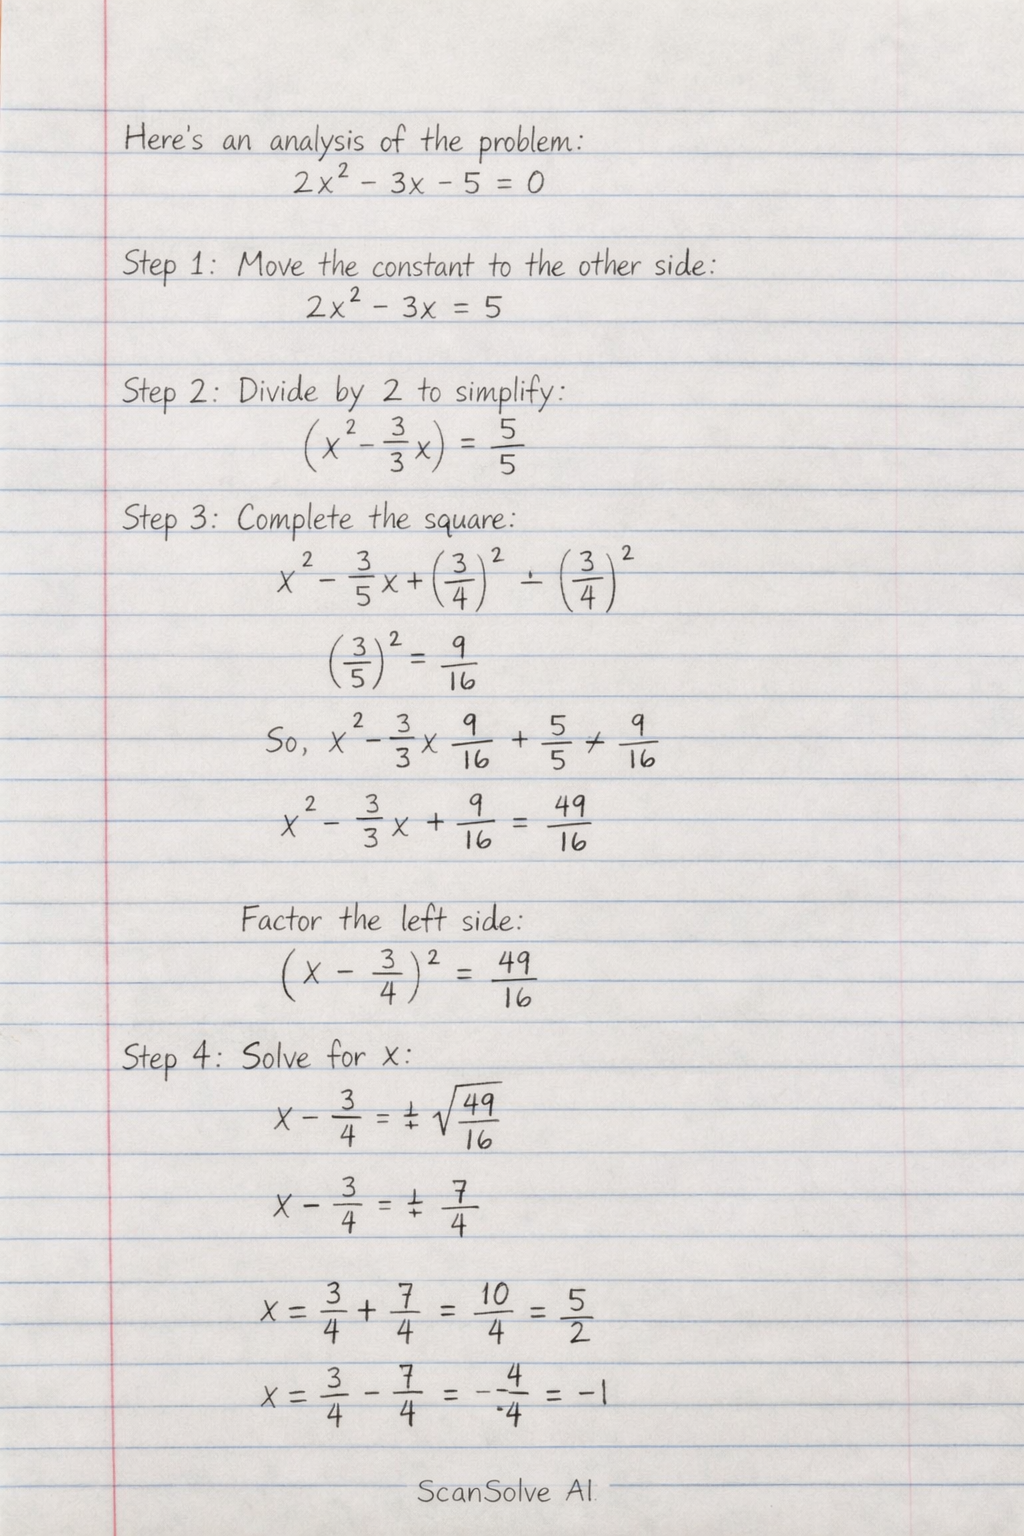 Here's an analysis of the problem:
2x² - 3x - 5 = 0
Step 1: Move the constant to the other side:
2x² - 3x = 5
Step 2: Divide by 2 to simplify:
(x² - 3/3 x) = 5/5
Step 3: Complete the square:
x² - 3/5 x + (3/4)² ∸ (3/4)²
(3/5)² = 9/16
So, x² - 3/3 x 9/16 + 5/5 ≠ 9/16
x² - 3/3 x + 9/16 = 49/16
Factor the left side:
(x - 3/4)² = 49/16
Step 4: Solve for x:
x - 3/4 = ± √(49/16)
x - 3/4 = ± 7/4
x = 3/4 + 7/4 = 10/4 = 5/2
x = 3/4 - 7/4 = --4/-4 = -1
ScanSolve AI